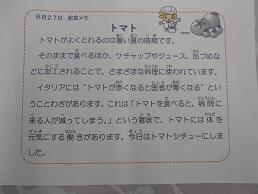 6月27日 給食メモ
トマト
トマトがよくとれるのは暑い夏の時期です。
そのままで食べるほか、ケチャップやジュース、缶づめな
どに加工されることで、さまざまな料理に使われています。
イタリアには“トマトが赤くなると医者が青くなる”とい
うことわざがあります。これは「トマトを食べると、病院に
来る人が減ってしまう。」という意味で、トマトには体を
元気にする働きがあります。今日はトマトシチューにしま
した。